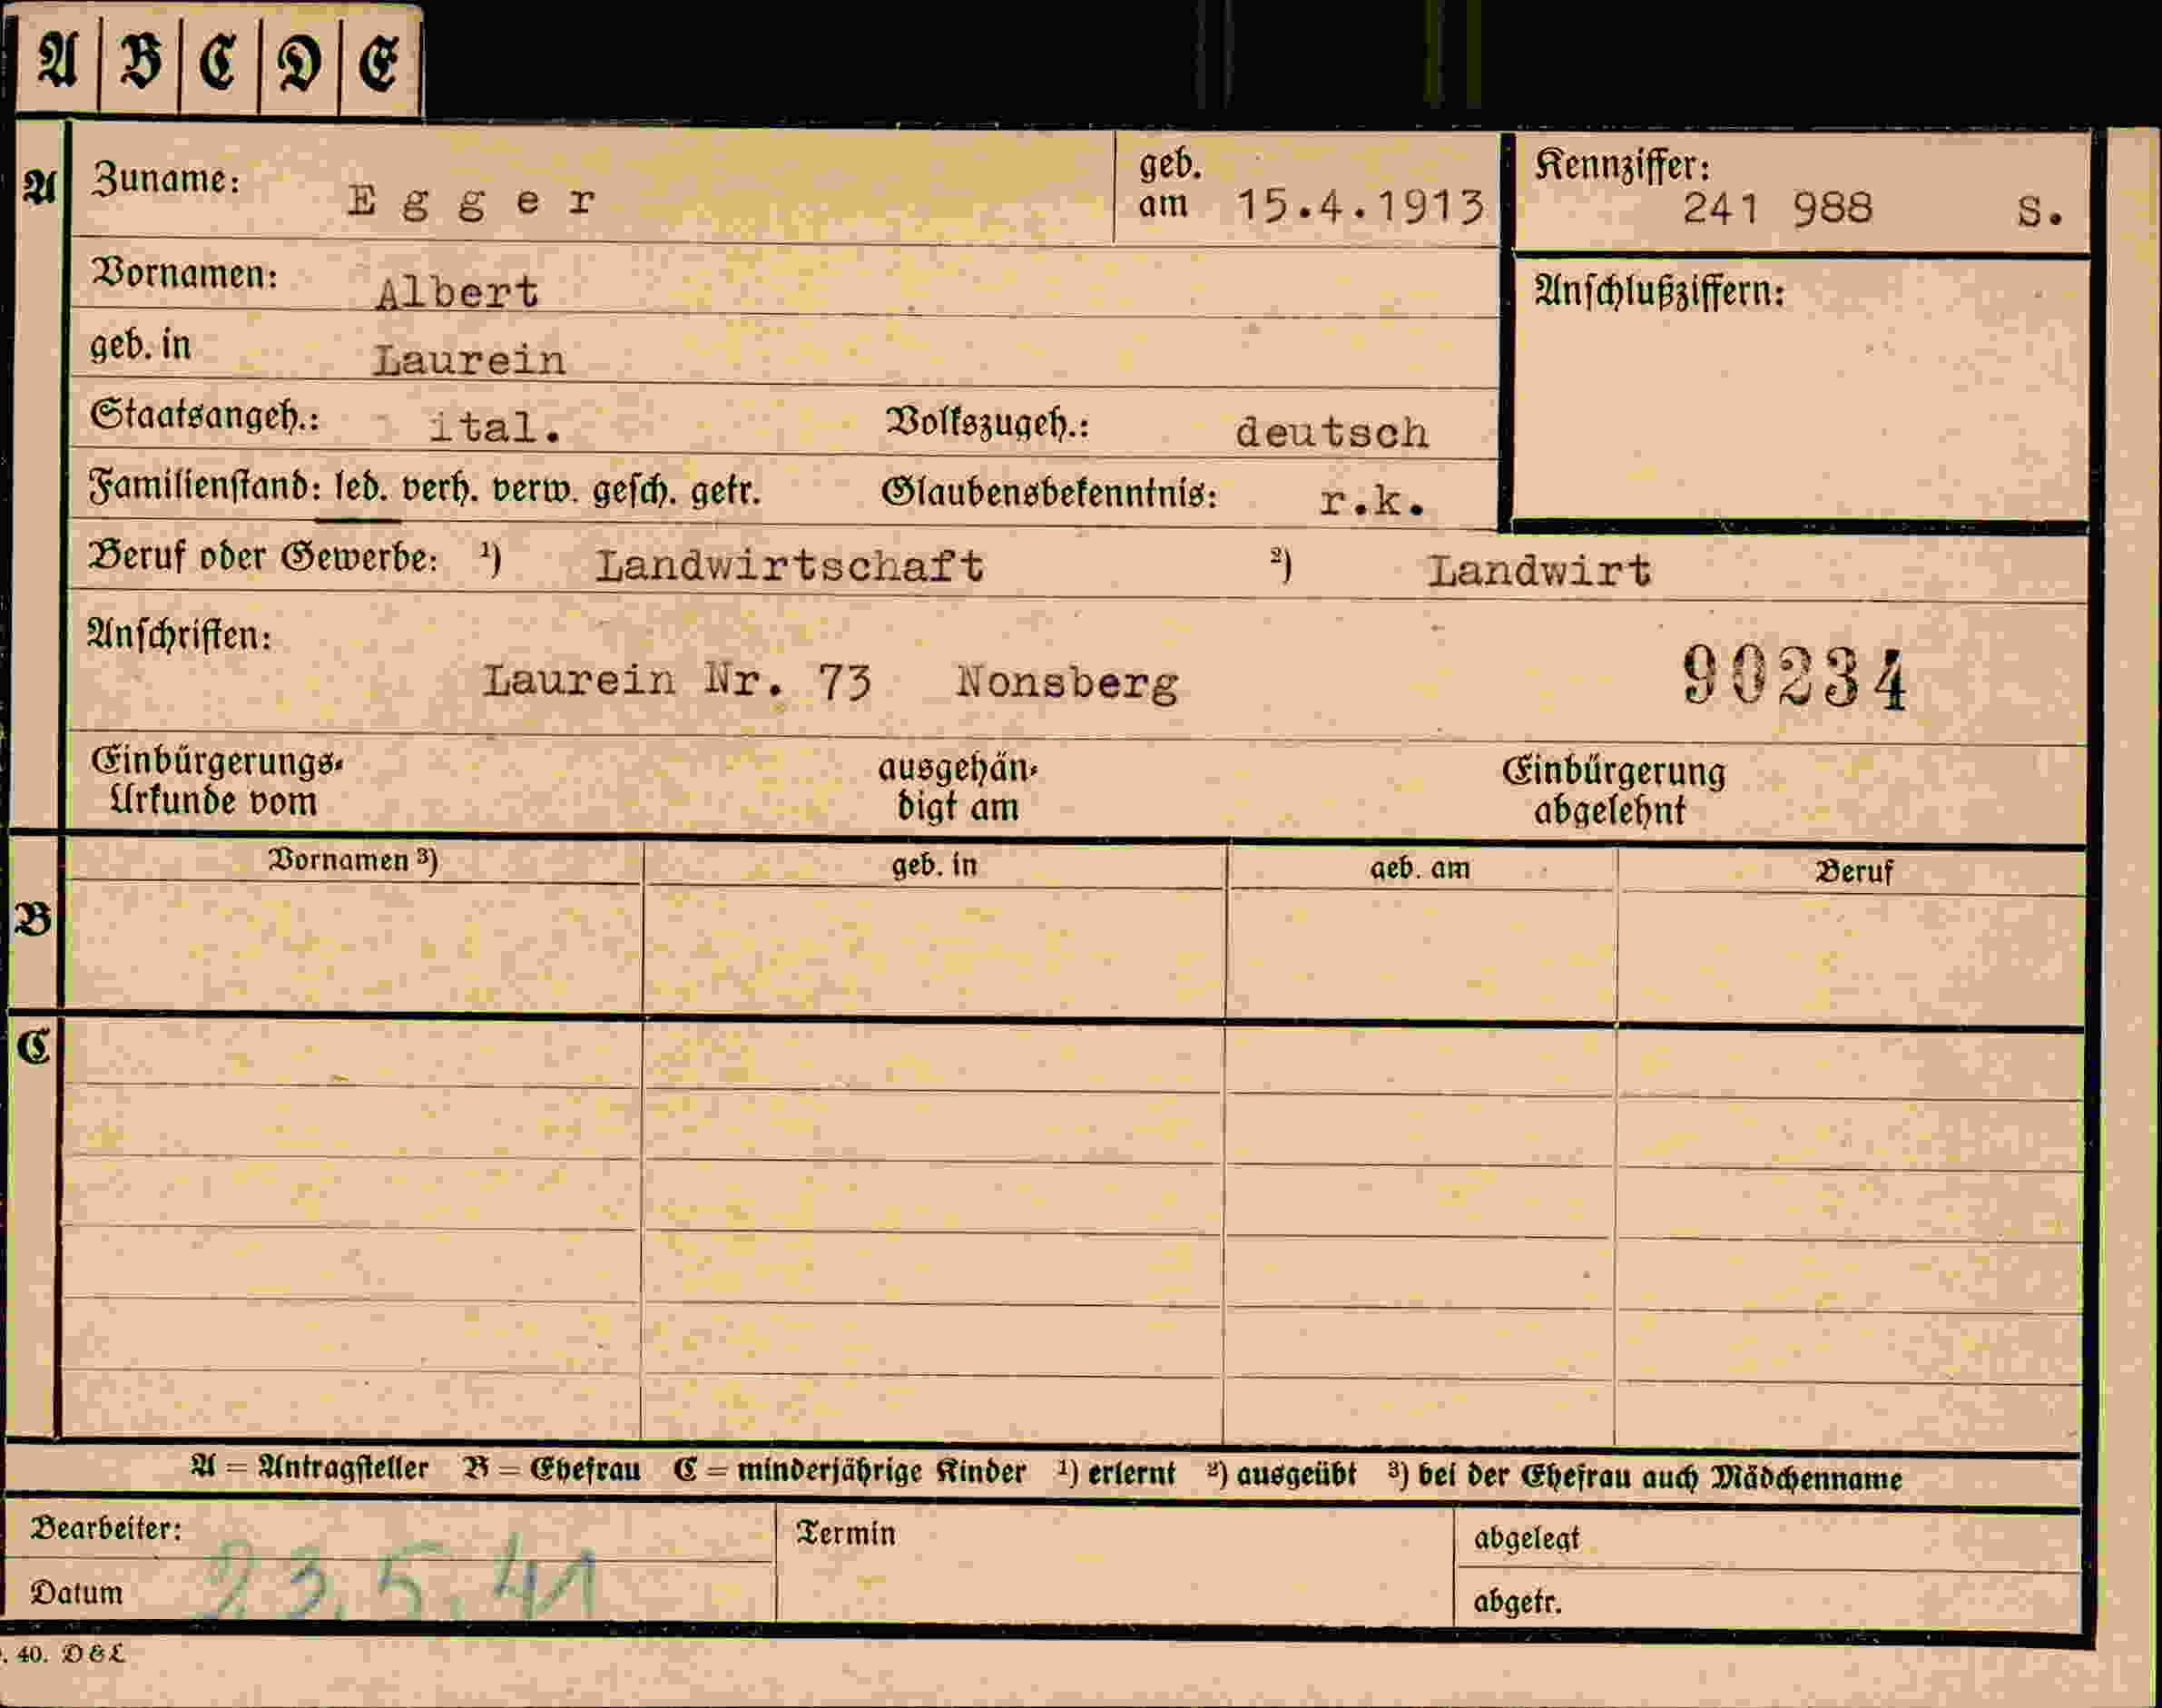 A B C D E
A Zuname: Egger geb. am 15.4.1913 Kennziffer: 241 988 S.
Vornamen: Albert Anschlußziffern:
geb. in Laurein
Staatsangeh.: ital. Volkszugeh.: deutsch
Familienstand: led. verh. verw. gesch. getr. Glaubensbekenntnis: r.k.
Beruf oder Gewerbe: ¹) Landwirtschaft ²) Landwirt
Anschriften:
Laurein Nr. 73 Nonsberg 90234
Einbürgerungs- ausgehän- Einbürgerung
Urkunde vom digt am abgelehnt
Vornamen ³) geb. in geb. am Beruf
B
C
A = Antragsteller B = Ehefrau C = minderjährige Kinder ¹) erlernt ²) ausgeübt ³) bei der Ehefrau auch Mädchenname
Bearbeiter: Termin abgelegt
23.5.41
Datum abgetr.
. 40. D & L